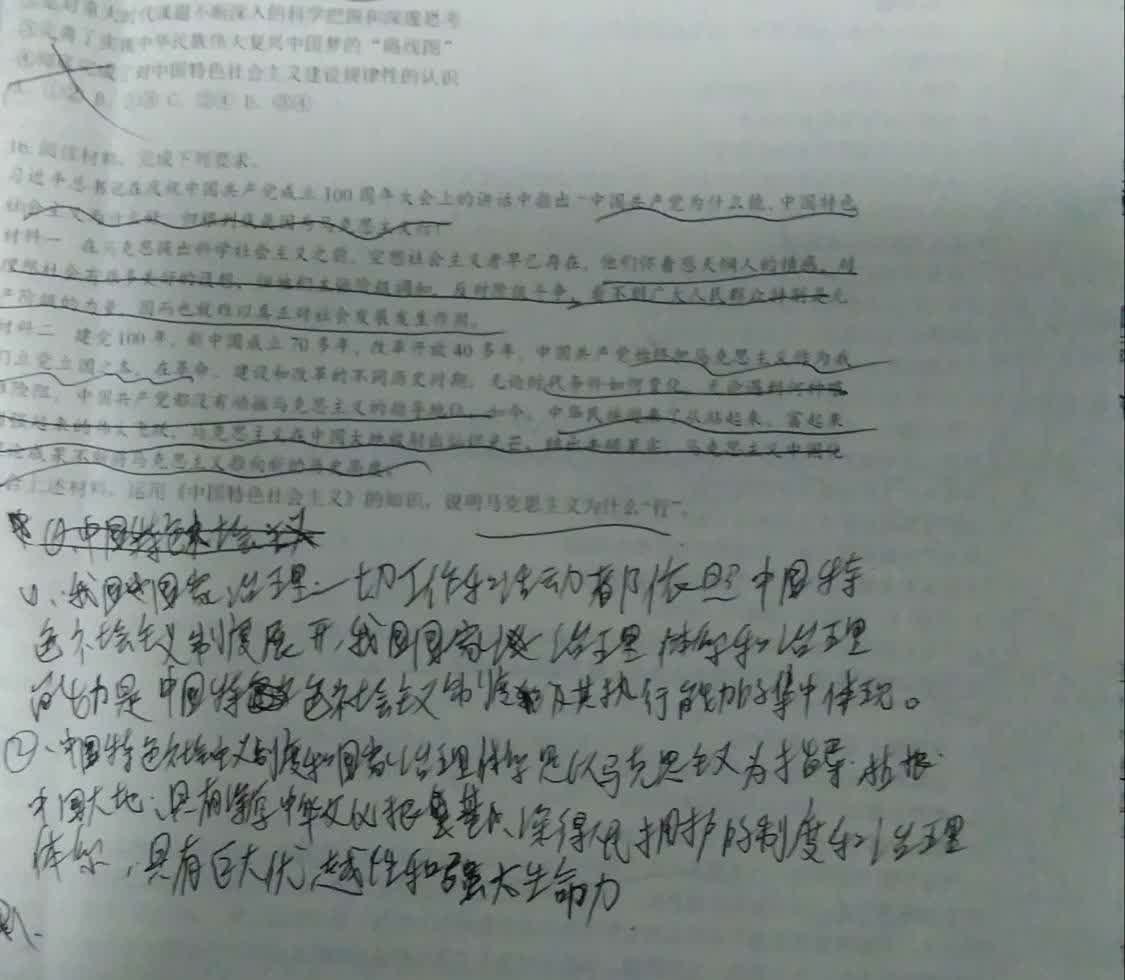 时代课题不断深入的科学把握和深度思考
中华民族伟大复兴中国梦的“路线图”
对中国特色社会主义建设规律性的认识
B. ①③ C. ②④ D. ③④
16. 阅读材料，完成下列要求。
习近平总书记在庆祝中国共产党成立100周年大会上的讲话中指出“中国共产党为什么能、中国特色
社会主义为什么好，归根到底是因为马克思主义行！
材料一 在马克思提出科学社会主义之前，空想社会主义者早已存在，他们怀着悲天悯人的情感，对
理想社会有很多美好的设想，但 阶级调和，反对阶级斗争，看不到广大人民群众特别是无
产阶级的力量，因而也就难以真正对社会发展发生作用。
材料二 建党100年，新中国成立70多年，改革开放40多年，中国共产党始终把马克思主义作为我
们立党立国之本，在革命、建设和改革的不同历史时期，无论时代条件如何变化，无论遇到何种
险阻，中国共产党都没有动摇马克思主义的指导地位。如今，中华民族迎来了从站起来、富起来
强起来的伟大飞跃，马克思主义在中国大地放射出 光芒， 马克思主义中国化
成果不断将马克思主义推向新的历史高度。
合上述材料，运用《中国特色社会主义》的知识，说明马克思主义为什么“行”。
中国特色社会主义
我国国家治理一切工作和活动都依照中国特
色社会主义制度展开，我国国家 治理体系和治理
能力是中国特 色社会主义制度 及其执行能力的集中体现。
②、中国特色社会主义制度和国家治理体系是以马克思主义为指导、植根
中国大地、具有深厚中华文化根 基、深得人民拥护的制度和治理
体系，具有巨大优越性和强大生命力